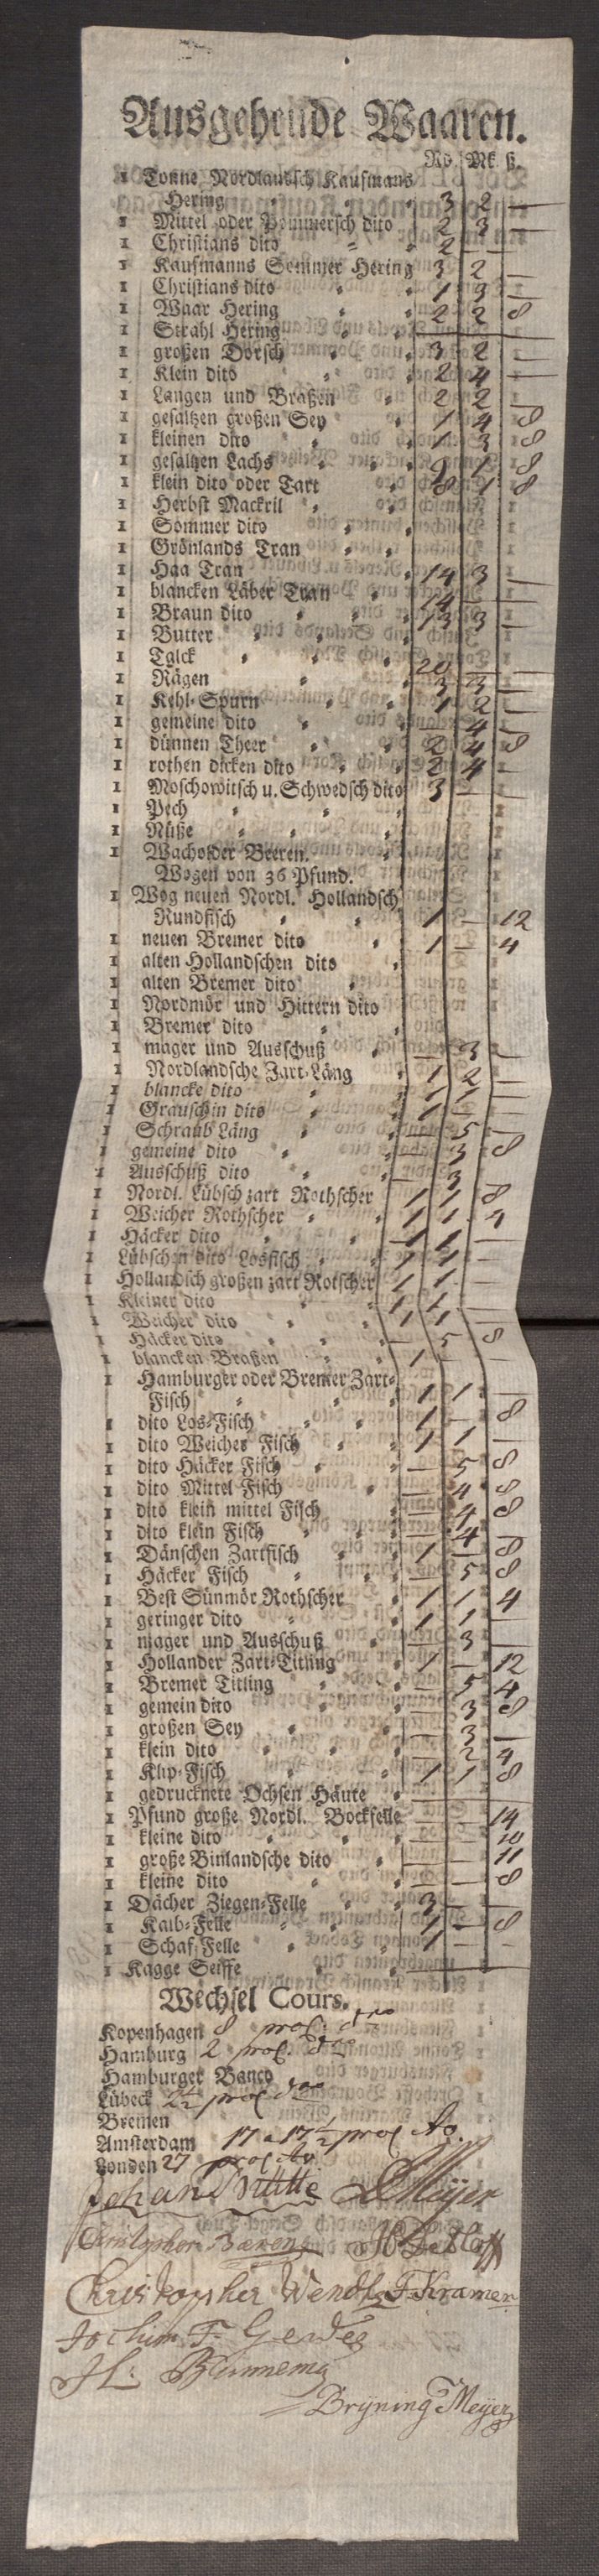 Ausgehende Waaren.
Rd. Mk ß.
1 Tonne Nordlandsch Kaufmans
Hering 3 2 —
1 Mittel oder Pommersch dito 2 3 —
1 Christians dito 2 — —
1 Kaufmanns Sommer Hering 3 2 —
1 Christians dito 1 3 —
1 Waar Hering 2 2 8
1 Strahl Hering
1 großen Dorsch 3 2 —
1 Klein dito 2 4 —
1 Langen und Braßen 2 2 —
1 gesaltzen großen Sey 1 4 8
1 kleinen dito 1 3 8
1 gesaltzen Lachs 9 1 8
1 klein dito oder Tart 8 1 8
1 Herbst Mackril
1 Sommer dito
1 Grönlands Tran
1 Haa Tran 14 3 —
1 blancken Läber Tran 14 — —
1 Braun dito 13 3 —
1 Butter
1 Talck 20 — —
1 Rägen 3 3 —
1 Kehl-Spurn 1 2 —
1 gemeine dito — 4 —
1 dünnen Theer 2 4 8
1 rothen dicken dito 2 4 —
1 Moschowitsch u. Schwedsch dito 3 — —
1 Pech
1 Nüße
1 Wacholder Beeren.
Wogen von 36 Pfund.
1 Wog neuen Nordl. Hollandsch
Rundfisch 1 — 12
1 neuen Bremer dito 1 — 4
1 alten Hollandschen dito
1 alten Bremer dito
1 Nordmör und Hittern dito
1 Bremer dito
1 mager und Ausschuß — 3 —
1 Nordlandsche Zart-Läng 1 2 —
1 blancke dito 1 1 —
1 Grauschin dito 1 — —
1 Schraub Läng — 5 8
1 gemeine dito — 3 8
1 Ausschuß dito — 3 —
1 Nordl. Lübsch zart Rothscher 1 1 8
1 Weicher Rothscher 1 1 4
1 Häcker dito 1 1 —
1 Lübschen dito Losfisch 1 1 —
1 Hollandsch großen zart Rotscher 1 1 —
1 Kleiner dito 1 1 —
1 Weicher dito 1 1 —
1 Häcker dito — 5 8
1 blancken Braßen 1 — —
1 Hamburger oder Bremer Zart-
Fisch 1 1 —
1 dito Los-Fisch 1 — 8
1 dito Weicher Fisch 1 1 —
1 dito Häcker Fisch — 5 8
1 dito Mittel Fisch — 4 8
1 dito klein mittel Fisch — 4 8
1 dito klein Fisch — 4 —
1 Dänschen Zartfisch 1 — 8
1 Häcker Fisch — 5 8
1 Best Sünmör Rothscher 1 1 4
1 geringer dito 1 1 —
1 mager und Ausschuß — 3 —
1 Hollander Zart-Titling 1 — 12
1 Bremer Titling — 5 4
1 gemein dito — 3 8
1 großen Sey — 3 —
1 klein dito — 2 4
1 Klip-Fisch 1 1 8
1 gedrucknete Ochsen Häute — — —
1 Pfund große Nordl. Bockfelle — — 14
1 kleine dito — — 10
1 große Binlandsche dito — — 11
1 kleine dito — — 8
1 Dächer Ziegen-Felle 3 — —
1 Kalb-Felle 1 — 8
1 Schaf-Felle 1 — —
1 Kagge Seiffe
Wechsel Cours.
Kopenhagen 8 proC. dto
Hamburg 2 proC. dto
Hamburger Banco
Lübeck 2½ proC dto
Bremen
Amsterdam 17 a 17½ proC do.
Londen 27 proC do.
Johan Meyer
Christopher
Christopher Wendt F. Kramer
Jochim F. Gerdes
Brÿning Meyer